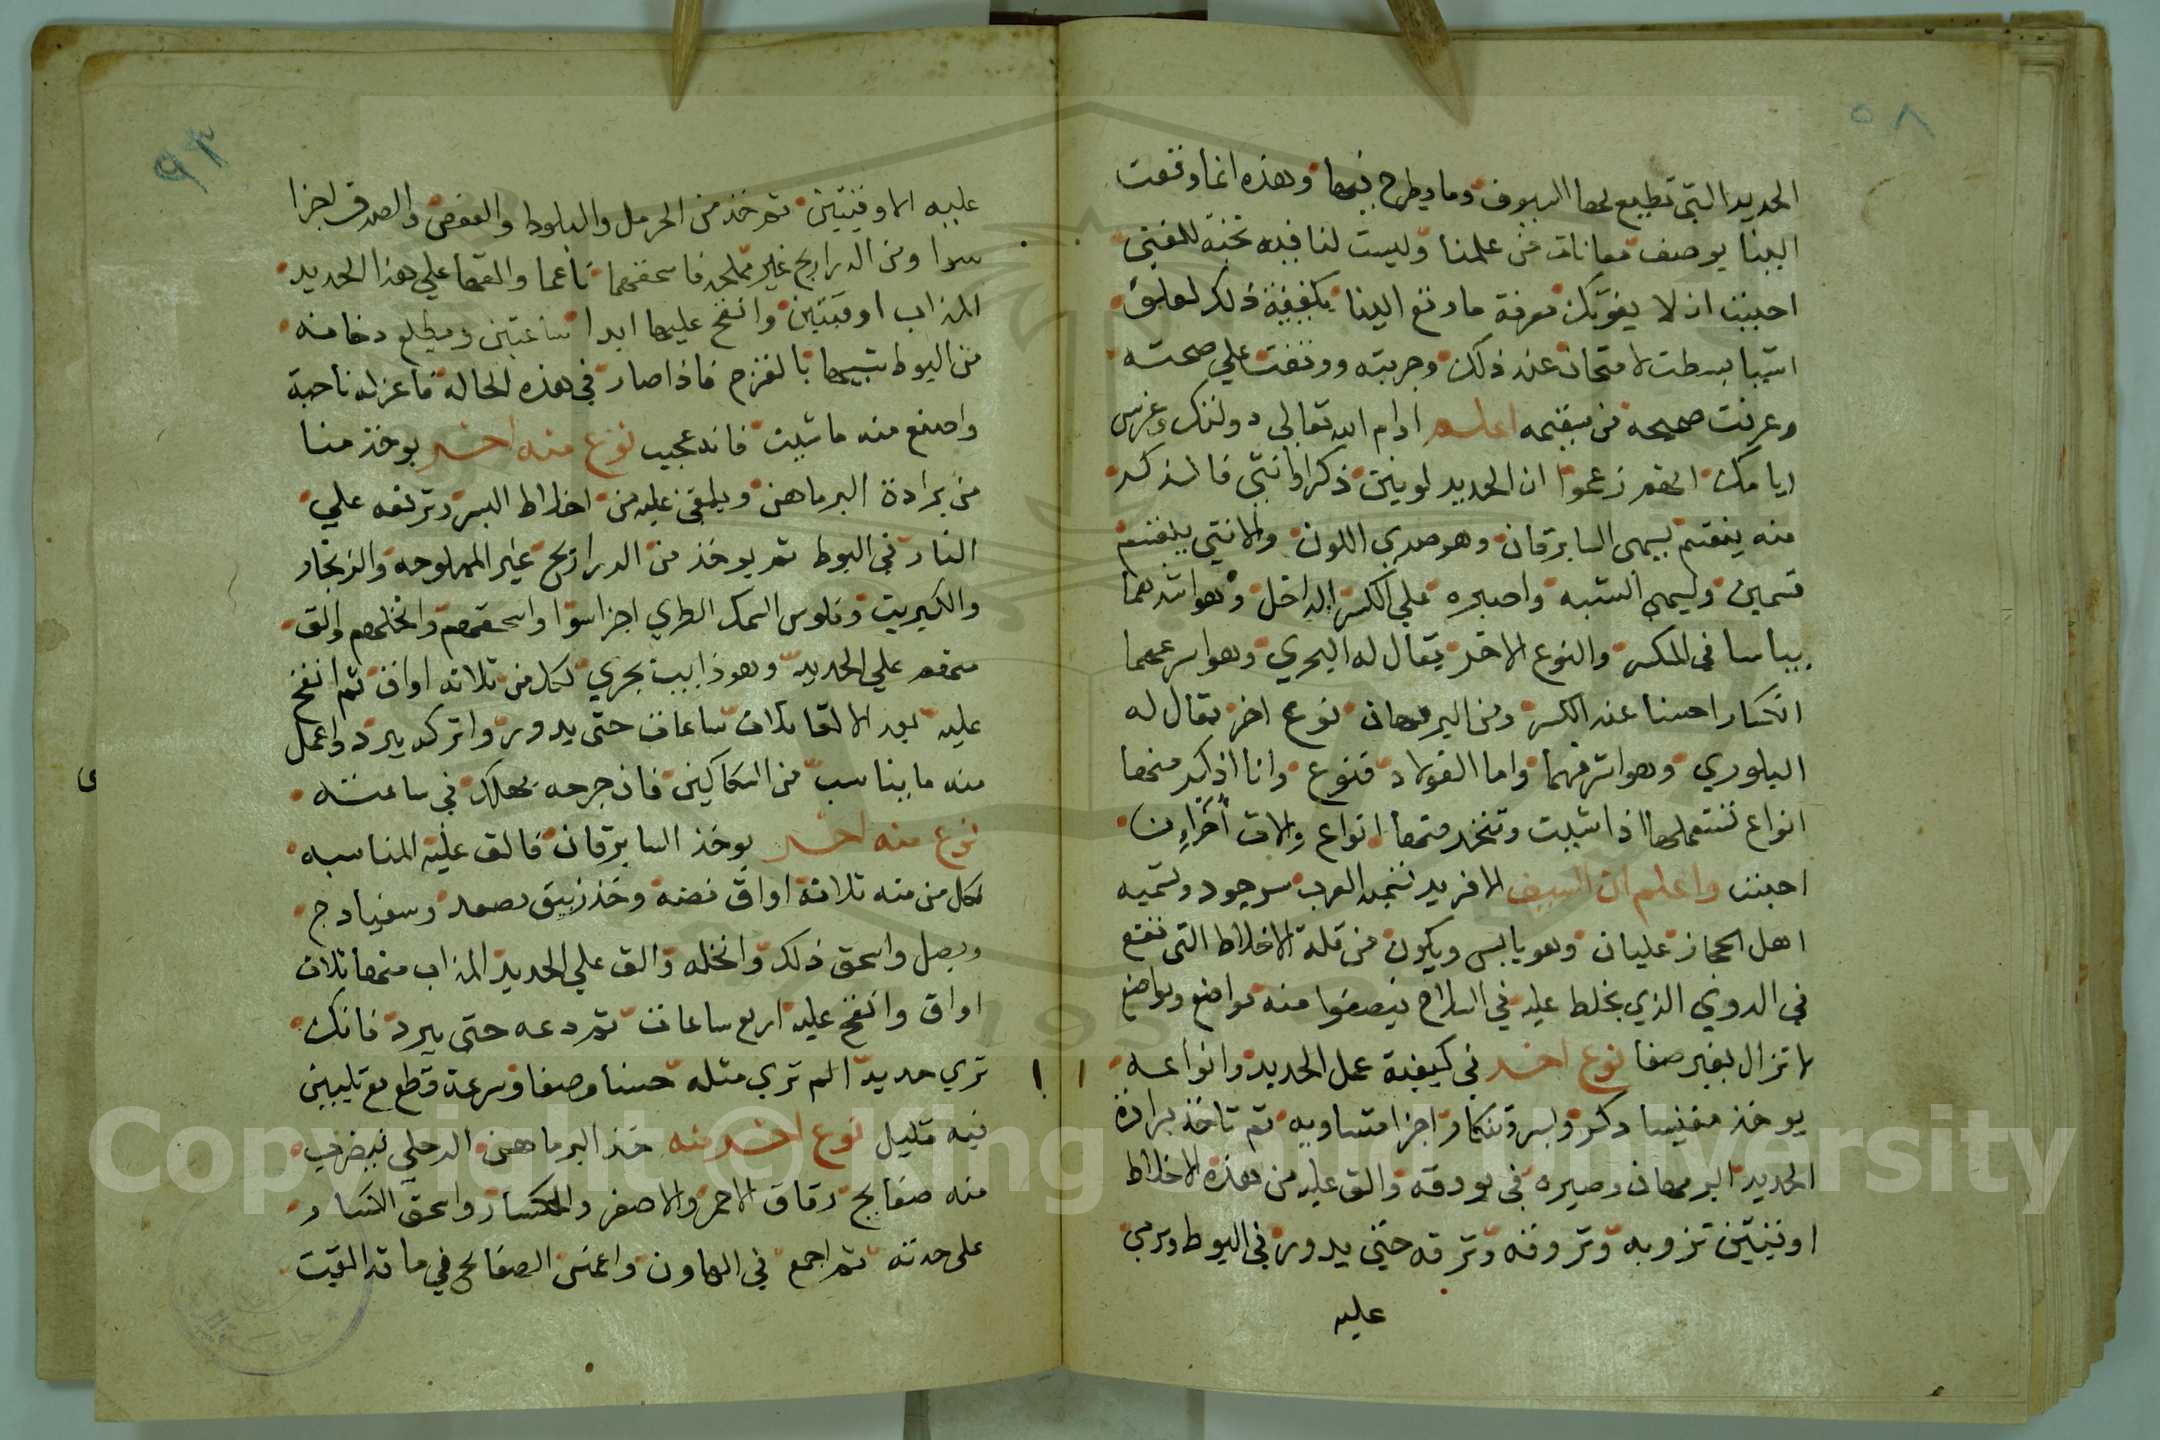 ٥٨
الحديد التي تطبع لها السيوف وما يطرح فيها وهذه انما وقعت
الينا بوصف معانات من علمنا وليست لنا فيه تجنه للمفتي
احببت ان لا يفوتك معرفة ما وقع الينا بكيفية ذلك لعلق
استبا بسطت لامتحان عند ذلك وجربته ووقفت علي صحته
وعرفت صحيحه من سقيمه اعلم ادام الله تعالي دولتك وحرس
ايامك انهم زعموا ان الحديد لونين ذكر وانثي فالذكر
منه ينقسم يسمى السابرقان وهو صدي اللون والانثي ينقسم
قسمين ويسمى الشبه واصبره علي الكسر الداخل وهو اشدهما
بياسا في المكسر والنوع الاخر يقال له البحري وهو اسرعهما
انكسار احسنا عند الكسر ومن البرمهان نوع اخر يقال له
البلوري وهو اشرفهما واما الفولاد فنوع وانا اذكر منها
انواع تستعملها اذا شيت وتتخد منها انواع والات اخراين
احببت واعلم ان السيف الافريد تتجه العرب سرجود وتسميه
اهل الحجاز عليان وهو يابس ويكون من قلة الاخلاط التي تقع
في الدوي الذي يخلط عليه في السلاح فيصفوا منه مواضع ومواضع
لا تزال بغير صفا نوع اخر في كيفية عمل الحديد وانواعه
يوخذ مغنيسا دكر وبسر وتنكار اجزا متساويه ثم تاخذ برادة
الحديد البرمهان وصيره في بودقه والق عليه من هذه الاخلاط
اوقيتين تزوبه وتروقه وترقه حتي يدور في البوط وترمي
عليه
٩٣
عليه الاوقيتين ثم خذ من الحرمل والبلوط والعفص والصدق اجزا
سوا ومن الدراريح غير مملحه فاسحقهما ناعما والقها علي هذا الحديد
المذاب اوقيتين وانفخ عليها ابدا ساعتين ويطلع دخانه
من البوط شبيها بالقزح فاذا صار في هذه الحاله فاعزله ناحية
واصنع منه ما شيت فانه عجيب نوع منه اخر يوخذ منا
من برادة البرماهن ويلقى عليه من اخلاط البسر وترفعه علي
النار في البوط ثم يوخذ من الدراريح غير المملوحه والزنجار
والكبريت وفلوس السمك الطري اجزا سوا واسحقهم وانخلهم والق
منهم علي الحديد وهو ذايب بجري لكل من ثلاثه اواق ثم انفخ
عليه بعد الالقا ثلاث ساعات حتى يدور واتركه يبرد واعمل
منه ما يناسب من السكاكين فان جرحه يهلك في ساعته
نوع منه اخر يوخذ السابرقان فالق عليه المناسبه
لكل من منه ثلاثة اواق فضه وخذ زيبق مصعد وسفيادج
وبصل واسحق ذلك وانخله والق علي الحديد المذاب منها ثلاث
اواق وانفخ عليه اربع ساعات ثم دعه حتى يبرد فانك
تري حديدا لم تري مثله حسنا وصفا وسرعة قطع مع تليين
فيه قليل نوع اخر منه خذ البرماهن الدحلي فيضرب
منه صفايح رقاق الاحمر والاصفر والمكسار واسحق التنكار
على حدته ثم اجمع في الهاون واغمس الصفايح في ماقه القيت
Copyright © King Saud University